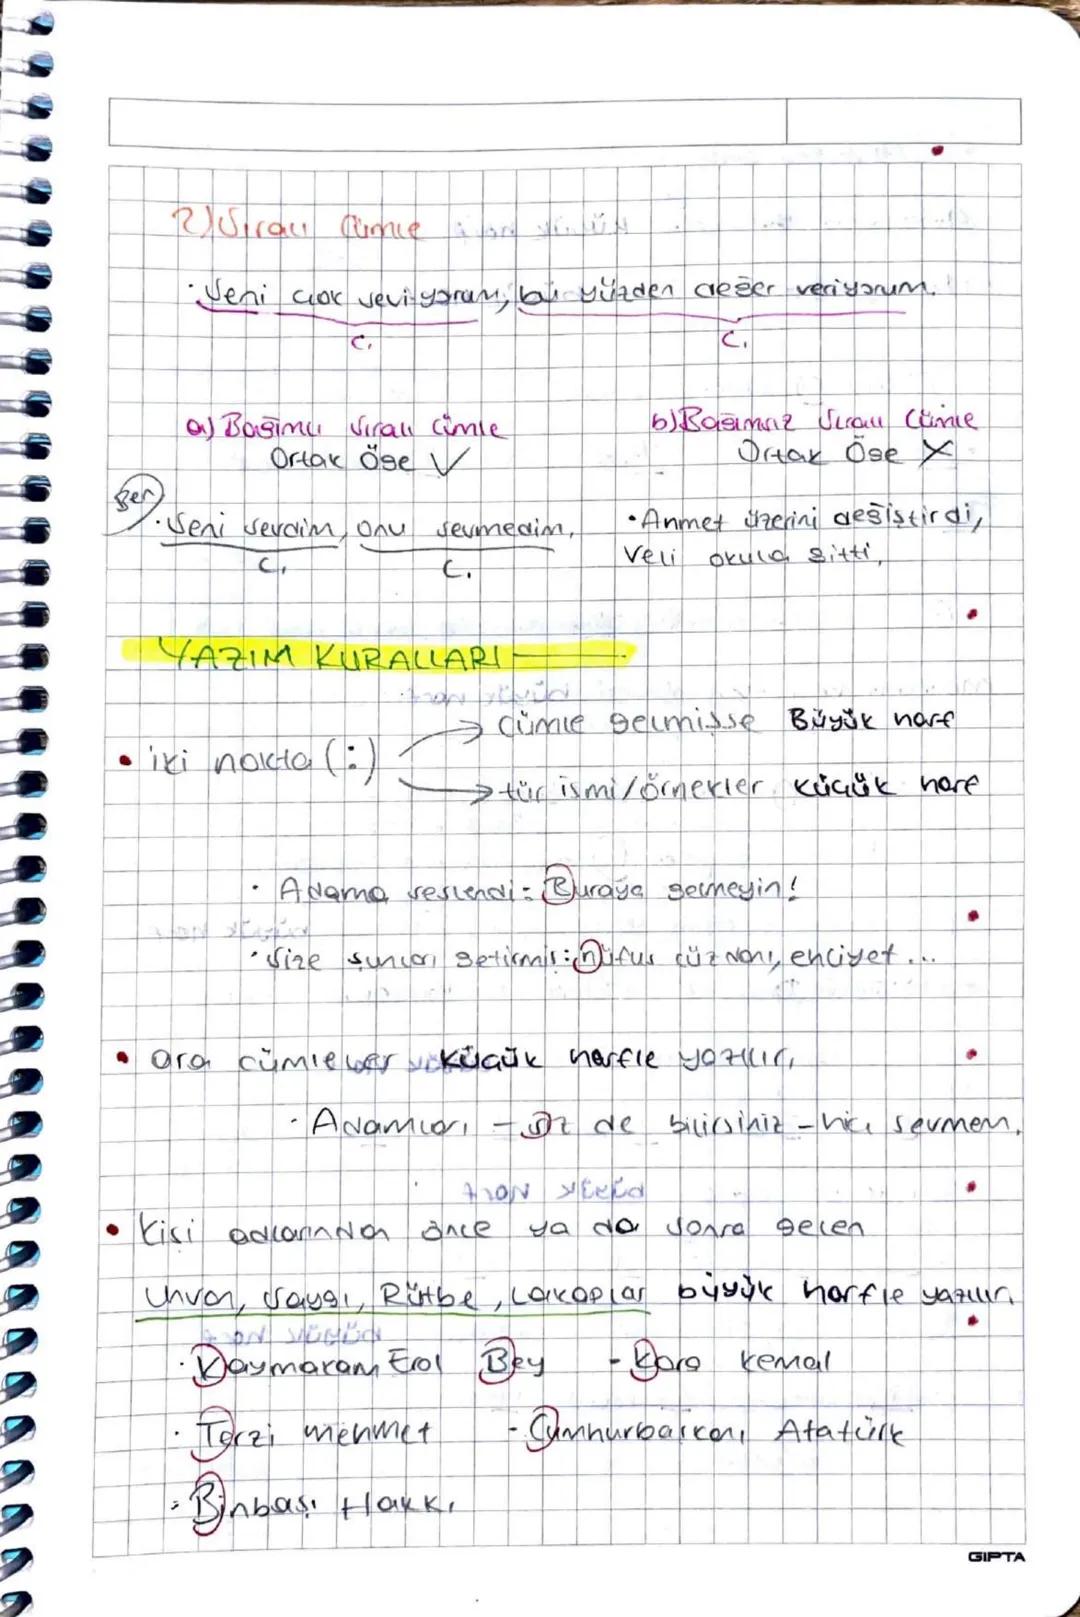 2) Sıralı Cümle
· Seni çok seviyorum, bu yüzden değer veriyorum.
C. C.
a) Bağımlı Sıralı Cümle
Ortak Öge ✓
b) Bağımsız Sıralı Cümle
Ortak Öge X
Ben
· Seni sevdim, onu sevmedim.
C. C.
• Ahmet üzerini değiştirdi,
Veli okula gitti.
YAZIM KURALLARI
• iki nokta (:)
→ Cümle gelmişse Büyük harf
→ tür ismi/örnekler küçük harf
· Adama seslendi: Buraya gelmeyin!
· Size şunları getirmiş: nüfus cüzdanı, ehliyet...
• ara cümleler küçük harfle yazılır.
· Adamları - siz de bilirsiniz - hiç sevmem.
• Kişi adlarından önce ya da sonra gelen
Unvan, Saygı, Rütbe, Lakaplar büyük harfle yazılır.
· Kaymakam Erol Bey - Kara Kemal
· Terzi Mehmet - Cumhurbaşkanı Atatürk
· Binbaşı Hakkı
GIPTA